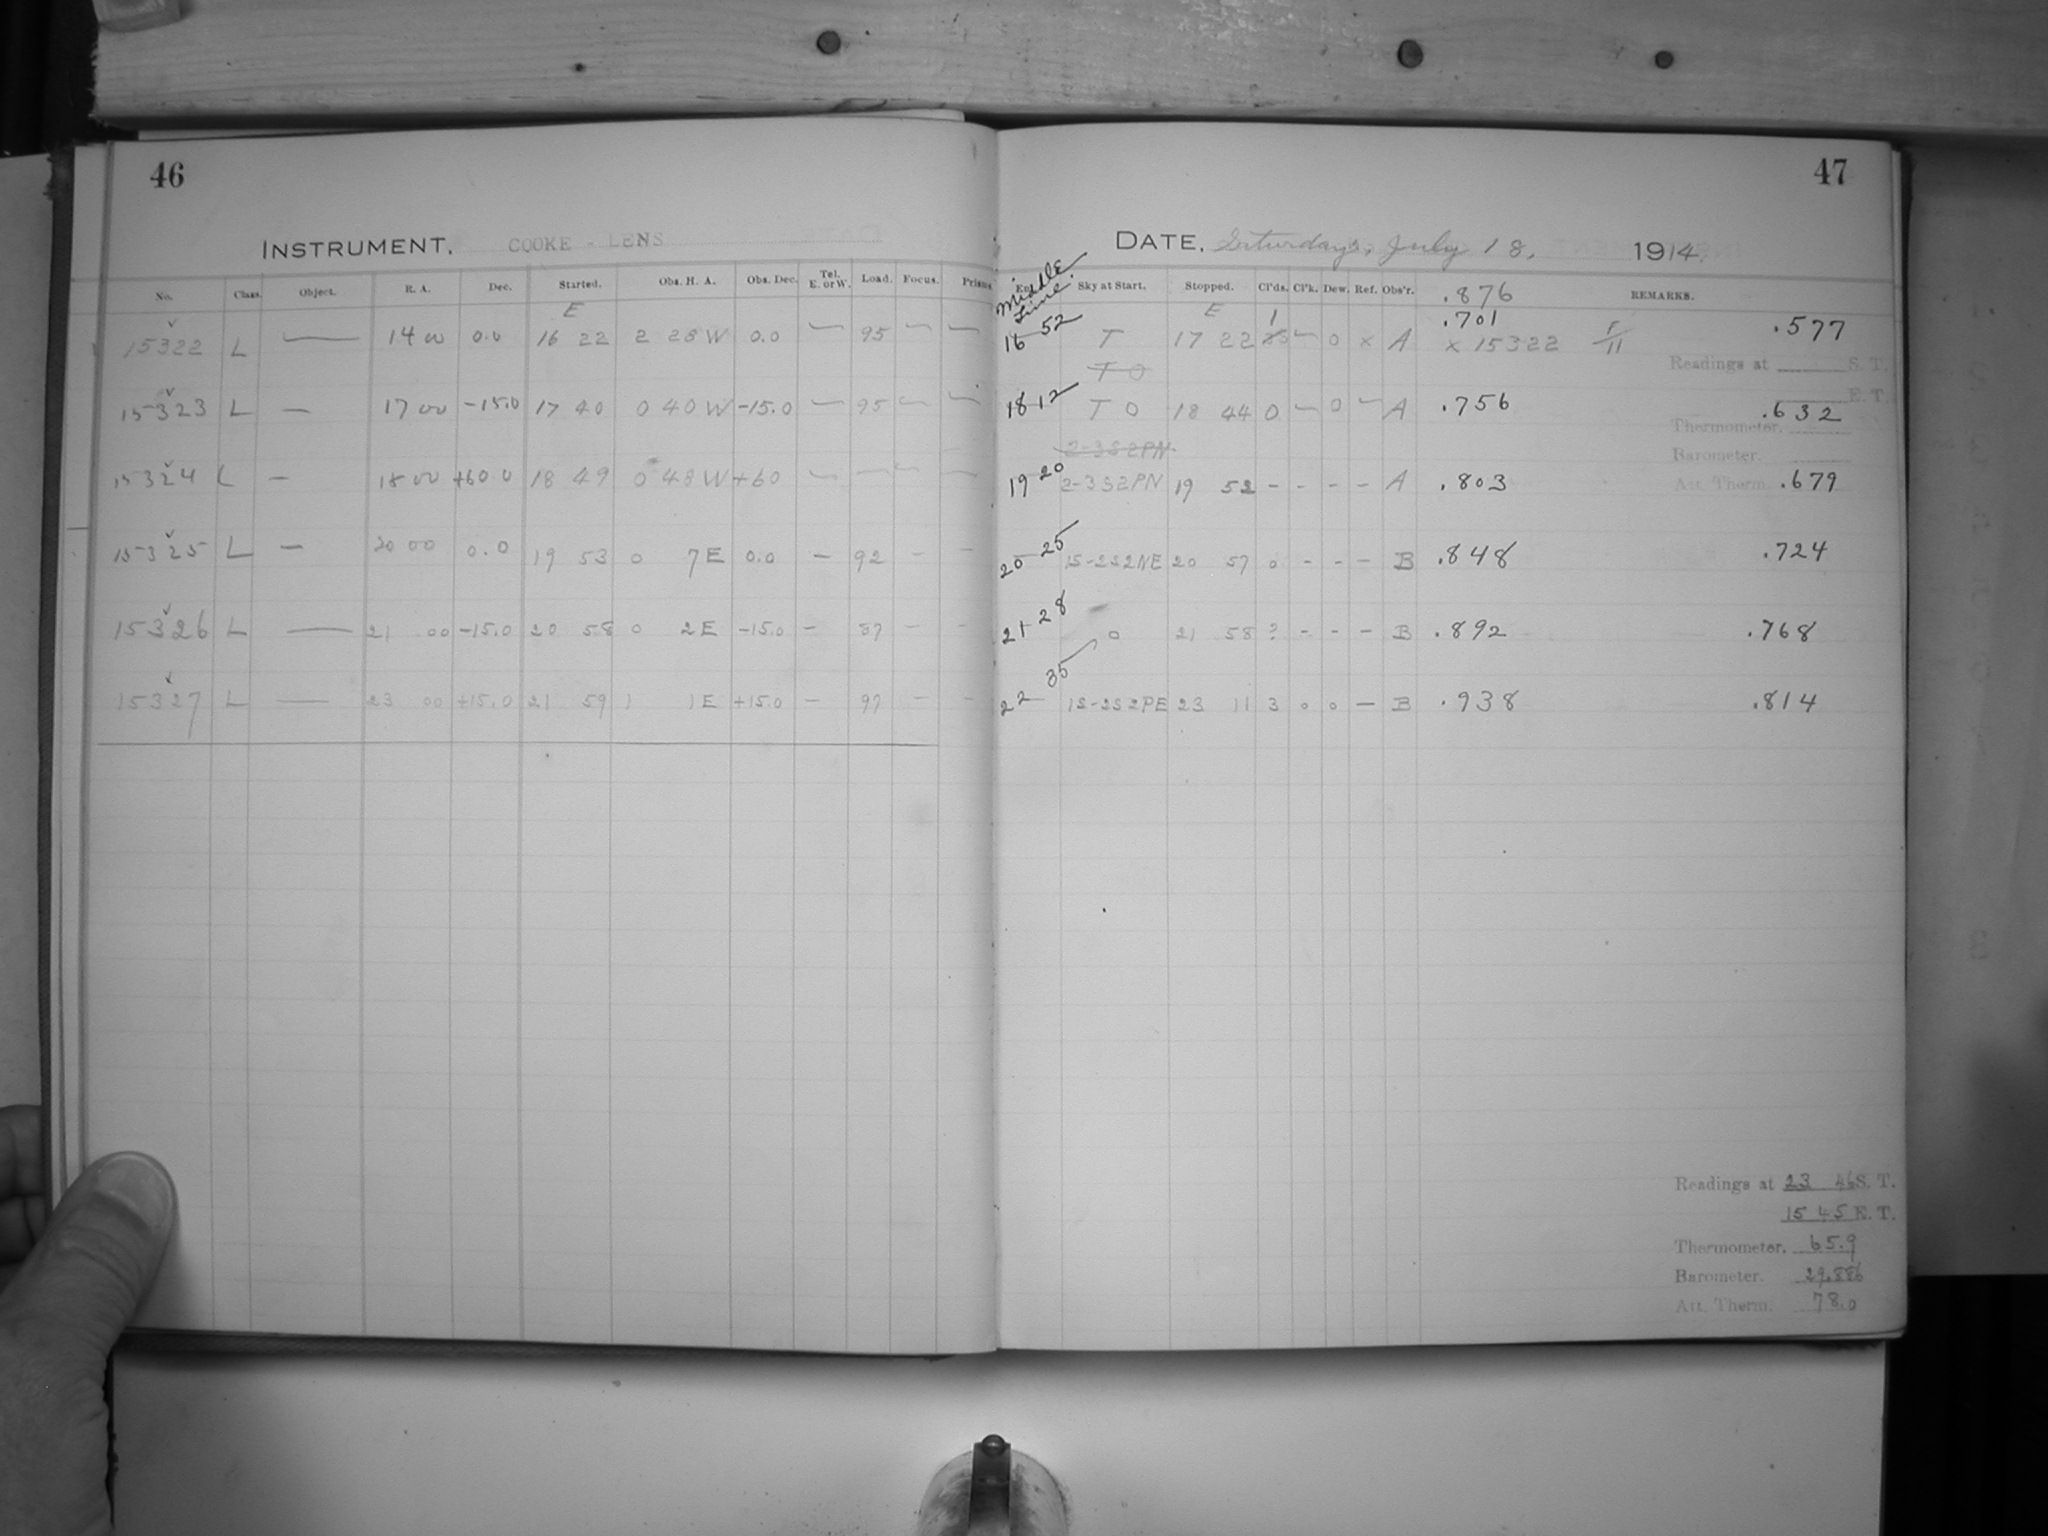 46
INSTRUMENT. COOKE - LENS
No. Class. Object. R. A. Dec. Started. Obs. H. A. Obs. Dec. Tel. E. or W. Load. Focus. Prism
E
15322 L — 14 00 0.0 16 22 2 28 W 0.0 — 95 — —
15323 L — 17 00 -15.0 17 40 0 40 W -15.0 — 95 — —
15324 L — 18 00 +60 0 18 49 0 48 W +60 — — — —
15325 L — 20 00 0.0 19 53 0 7 E 0.0 — 92 - -
15326 L — 21 00 -15.0 20 58 0 2 E -15.0 - 87 - -
15327 L — 23 00 +15.0 21 59 1 1 E +15.0 - 97 - -
47
DATE. Saturday, July 18, 1914.
Middle Time. Sky at Start. Stopped. Cl'ds. Cl'k. Dew. Ref. Obs'r. .876 REMARKS.
E 1 .701
16 52 T 17 22 — 0 x A x 15322 F/11 .577
T 0
Readings at S. T.
E. T.
18 12 T 0 18 44 0 — 0 — A .756 .632
Thermometer.
2-3S2PN
Barometer.
19 20 2-3S2PN 19 52 - - - - A .803 Att. Therm. .679
20 25 1S-2S2NE 20 57 0 - - - B .848 .724
21 28 0 21 58 ? - - - B .892 .768
22 35 1S-2S2PE 23 11 3 0 0 - B .938 .814
Readings at 23 46 S. T.
15 45 E. T.
Thermometer. 65.9
Barometer. 29.886
Att. Therm. 78.0